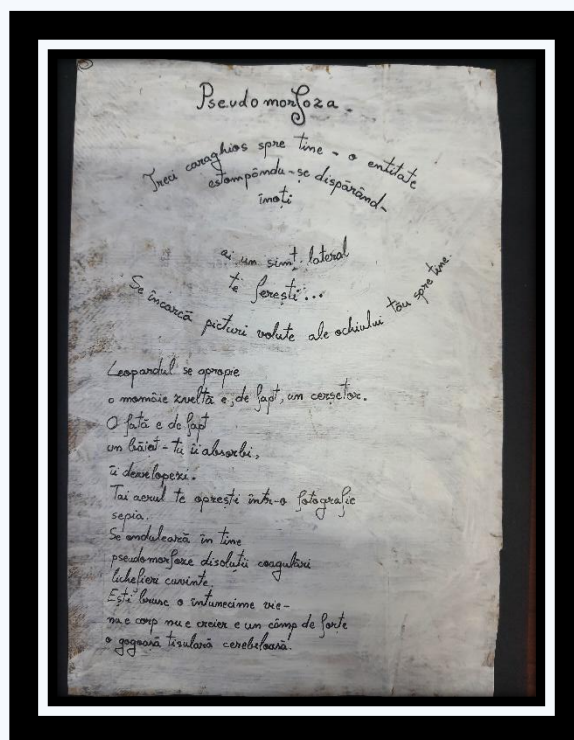 Pseudomorfoza.
Treci caraghios spre tine - o entitate
estompându-se dispărând-
înoți
ai un simț lateral
te ferești...
Se încarcă picturi volute ale ochiului tău spre tine.
Leopardul se apropie
o momâie zveltă e, de fapt, un cerșetor.
O fată e de fapt
un băiat - tu îi absorbi,
îi developezi.
Tai aerul te oprești într-o fotografie
sepia.
Se ondulează în tine
pseudomorfoze disoluții coagulări
lichefieri cuvinte.
Ești brusc o întunecime vie-
nu e corp nu e creier e un câmp de forțe
o gogoașă tisulară cerebeloasă.